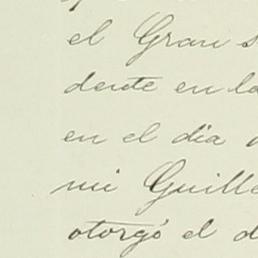 el Gran s
dente en la
en el dia
mi Guille
otorgó el d